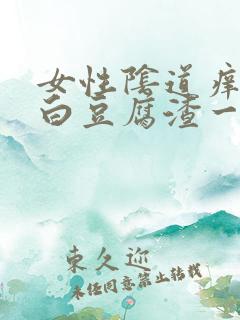 女性陰道癢
白豆腐渣一
東久迎
未经同意禁止转载